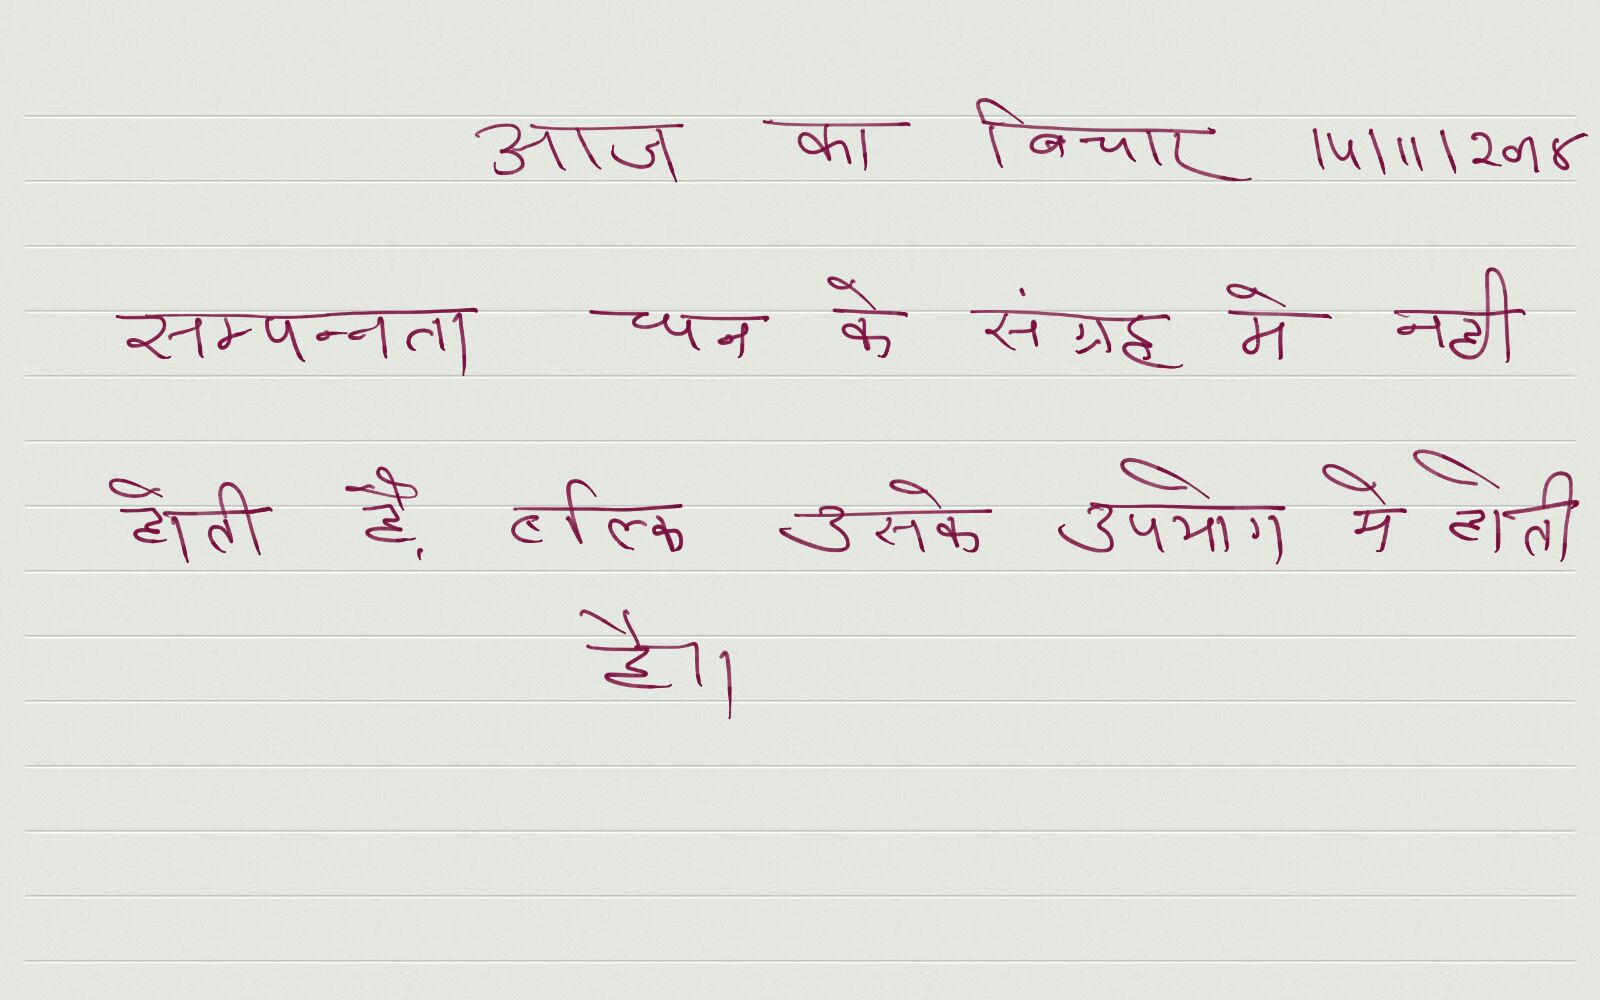 आज का विचार 14/11/2018
सम्पन्नता धन के संग्रह मे नही
होती है, बल्कि उसके उपभोग मे होती
है।।